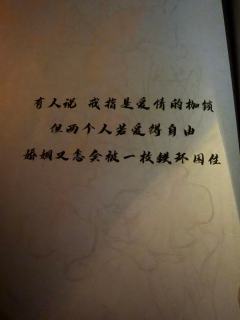 有人说 戒指是爱情的枷锁
但两个人若爱得自由
婚姻又怎会被一枚铁环困住